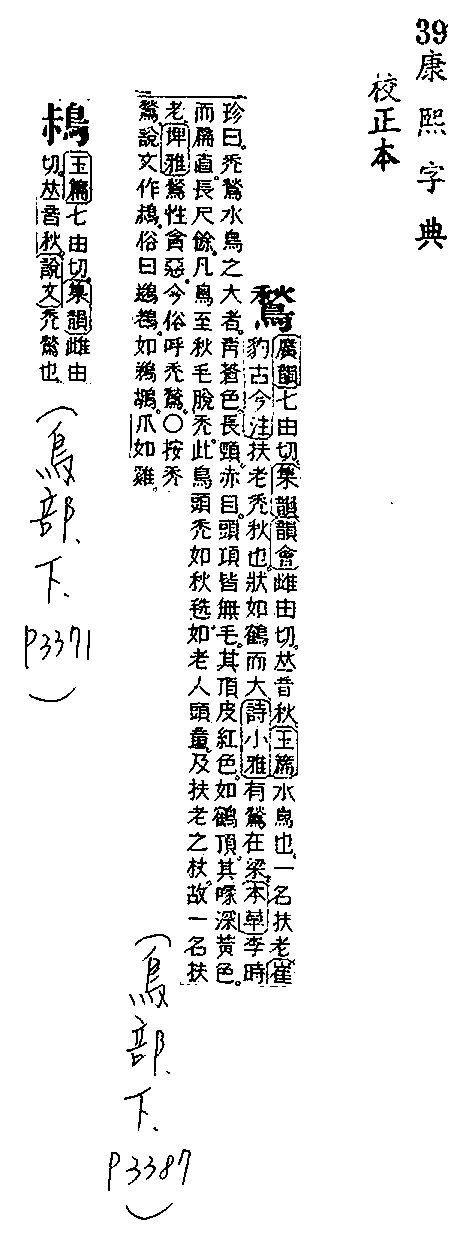 39康熙字典
校正本
鶖
廣韻七由切集韻韻會雌由切𠀤音秋玉篇水鳥也一名扶老崔
豹古今注扶老禿秋也狀如鶴而大詩小雅有鶖在梁本草李時
珍曰禿鶖水鳥之大者靑蒼色長頸赤目頭項皆無毛其頂皮紅色如鶴頂其喙深黃色
而扁直長尺餘凡鳥至秋毛脫禿此鳥頭禿如秋毨如老人頭童及扶老之杖故一名扶
老埤雅鶖性貪惡今俗呼禿鶖○按禿
鶖說文作䳋俗曰
如鵜鶘爪如雞
䳋
玉篇七由切集韻雌由
切𠀤音秋說文禿鶖也
(鳥部、下、P3371)
(鳥部、下、P3387)